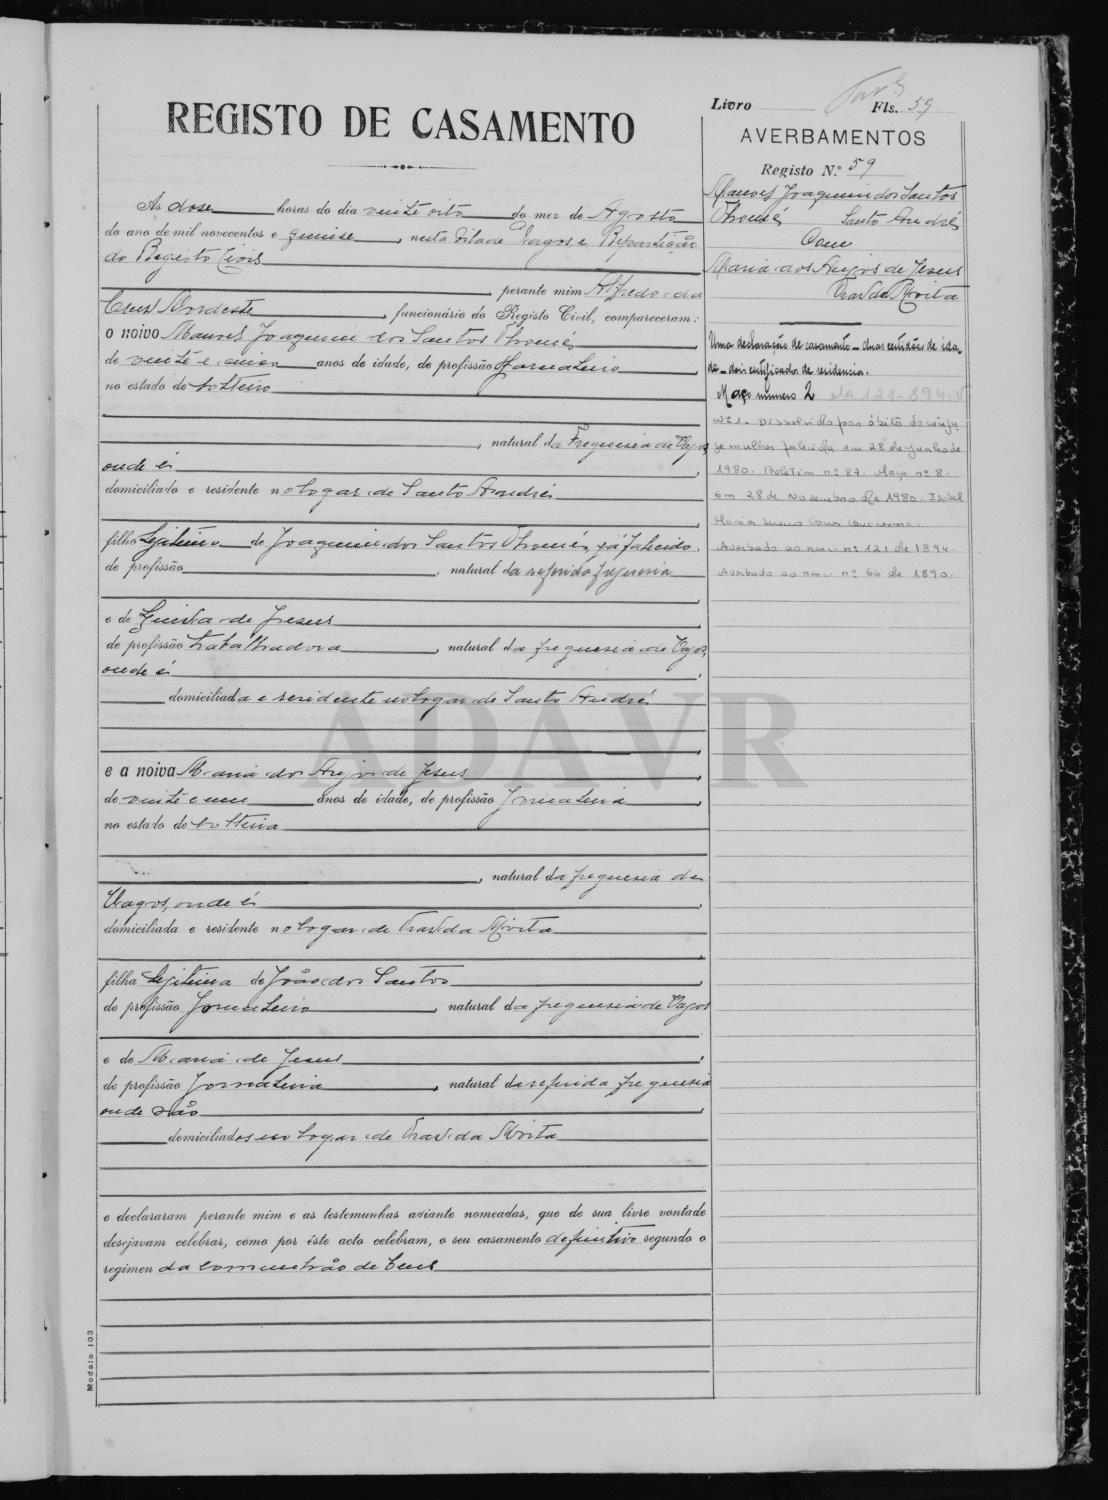 Livro Fls. 59
REGISTO DE CASAMENTO
AVERBAMENTOS
Registo N.º 59
Manoel Joaquim dos Santos
Thomé Santo André
Com
Maria dos Anjos de Jesus
da Moita
Uma declaração de casamento - duas certidões de ida-
de - dois certificados de residencia.
Maço numero 2
Nº 1. Dissolvido por óbito do cônju-
ge mulher falecida em 28 de junho de
1980. Boletim nº 87. Maço nº 8.
Em 28 de Novembro de 1980. Isabel
Maria
Averbado ao nº 121 de 1894.
Averbado ao nº 66 de 1890.
As dose horas do dia vinte oito do mez de Agosto
do ano de mil novecentos e quinse, nesta vila de Vagos e Repartição
do Registo Civil
perante mim Alfredo da
Cruz Nordeste, funcionário do Registo Civil, compareceram:
o noivo Manoel Joaquim dos Santos Thomé
de vinte e cinco anos de idade, de profissão Jornaleiro
no estado de solteiro
, natural da Freguesia de Vagos
onde é
domiciliado e residente no logar de Santo André
filho legitimo de Joaquim dos Santos Thomé, já falecido,
de profissão , natural da referida freguesia
e de de Jesus
de profissão trabalhadora, natural da freguesia de Vagos,
onde é
domiciliada e residente no logar de Santo André
e a noiva Maria dos Anjos de Jesus
de vinte e um anos de idade, de profissão Jornaleira
no estado de solteira
, natural da freguesia de
Vagos, onde é
domiciliada e residente no logar de da Moita
filha legitima de João dos Santos
de profissão Jornaleiro, natural da freguesia de Vagos
e de Maria de Jesus
de profissão Jornaleira, natural da referida freguesia
onde são
domiciliados no logar de da Moita
e declararam perante mim e as testemunhas adiante nomeadas, que de sua livre vontade
desejavam celebrar, como por êste acto celebram, o seu casamento definitivo segundo o
regimen da comunhão de bens
Modelo 103
ADAVR